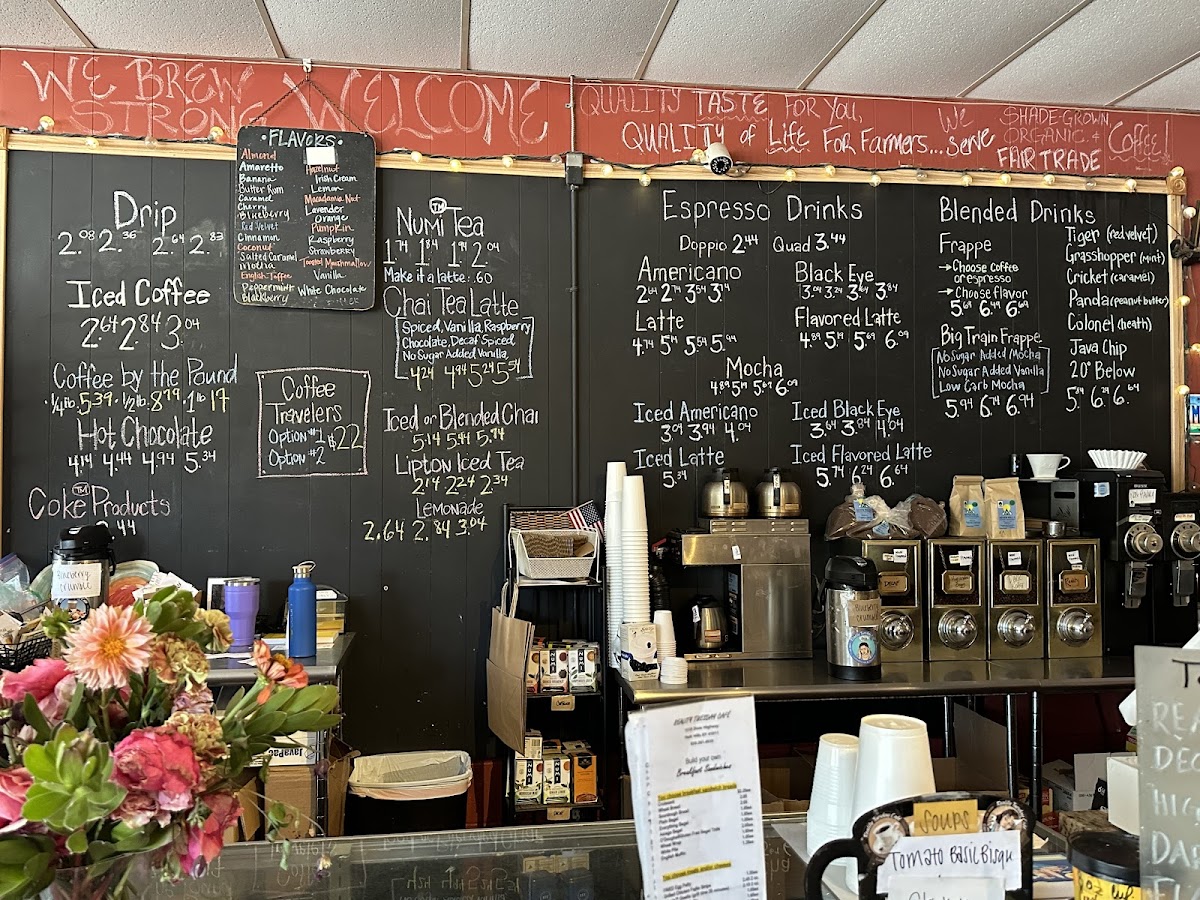 WE BREW
STRONG
WELCOME
QUALITY TASTE FOR YOU,
QUALITY of LIFE FOR FARMERS... WE SERVE
SHADE-GROWN
ORGANIC &
FAIR TRADE
COFFEE!
FLAVORS
Almond
Amaretto
Banana
Butter Rum
Caramel
Cherry
Blueberry
Red Velvet
Cinnamon
Coconut
Salted Caramel
Mocha
English Toffee
Peppermint
Blackberry
Hazelnut
Irish Cream
Lemon
Macadamia Nut
Lavender
Orange
Pumpkin
Raspberry
Strawberry
Toasted Marshmallow
Vanilla
White Chocolate
Drip
2.08 2.36 2.64 2.83
Iced Coffee
2.64 2.84 3.04
Coffee by the Pound
1/4 lb. 5.39 · 1/2 lb. 8.79 · 1 lb 17
Hot Chocolate
4.14 4.44 4.94 5.34
Coke™ Products
2.44
Coffee
Travelers
Option #1 $22
Option #2
Numi™ Tea
1.74 1.84 1.94 2.04
Make it a latte: .60
Chai Tea Latte
Spiced, Vanilla, Raspberry
Chocolate, Decaf Spiced,
No Sugar Added Vanilla,
4.24 4.94 5.24 5.54
Iced or Blended Chai
5.14 5.44 5.74
Lipton Iced Tea
2.14 2.24 2.34
Lemonade
2.64 2.84 3.04
Espresso Drinks
Doppio 2.44 Quad 3.44
Americano
2.64 2.74 3.54 3.14
Latte
4.74 5.14 5.54 5.94
Black Eye
3.04 3.24 3.64 3.84
Flavored Latte
4.89 5.14 5.69 6.09
Mocha
4.89 5.14 5.69 6.09
Iced Americano
3.04 3.94 4.04
Iced Latte
5.34
Iced Black Eye
3.64 3.84 4.04
Iced Flavored Latte
5.74 6.24 6.64
Blended Drinks
Frappe
→Choose Coffee
or espresso
→Choose flavor
5.69 6.49 6.69
Big Train Frappe
No Sugar Added Mocha
No Sugar Added Vanilla
Low Carb Mocha
5.94 6.74 6.94
Tiger (red velvet)
Grasshopper (mint)
Cricket (caramel)
Panda (peanut butter)
Colonel (heath)
Java Chip
20° Below
5.14 6.24 6.64
Blueberry
Crumble
Blueberry
Crumble
DECAF
NUMI
NUMI
JavaPac
Build your own
Breakfast Sandwiches
SOUPS
Tomato Basil Bisqu